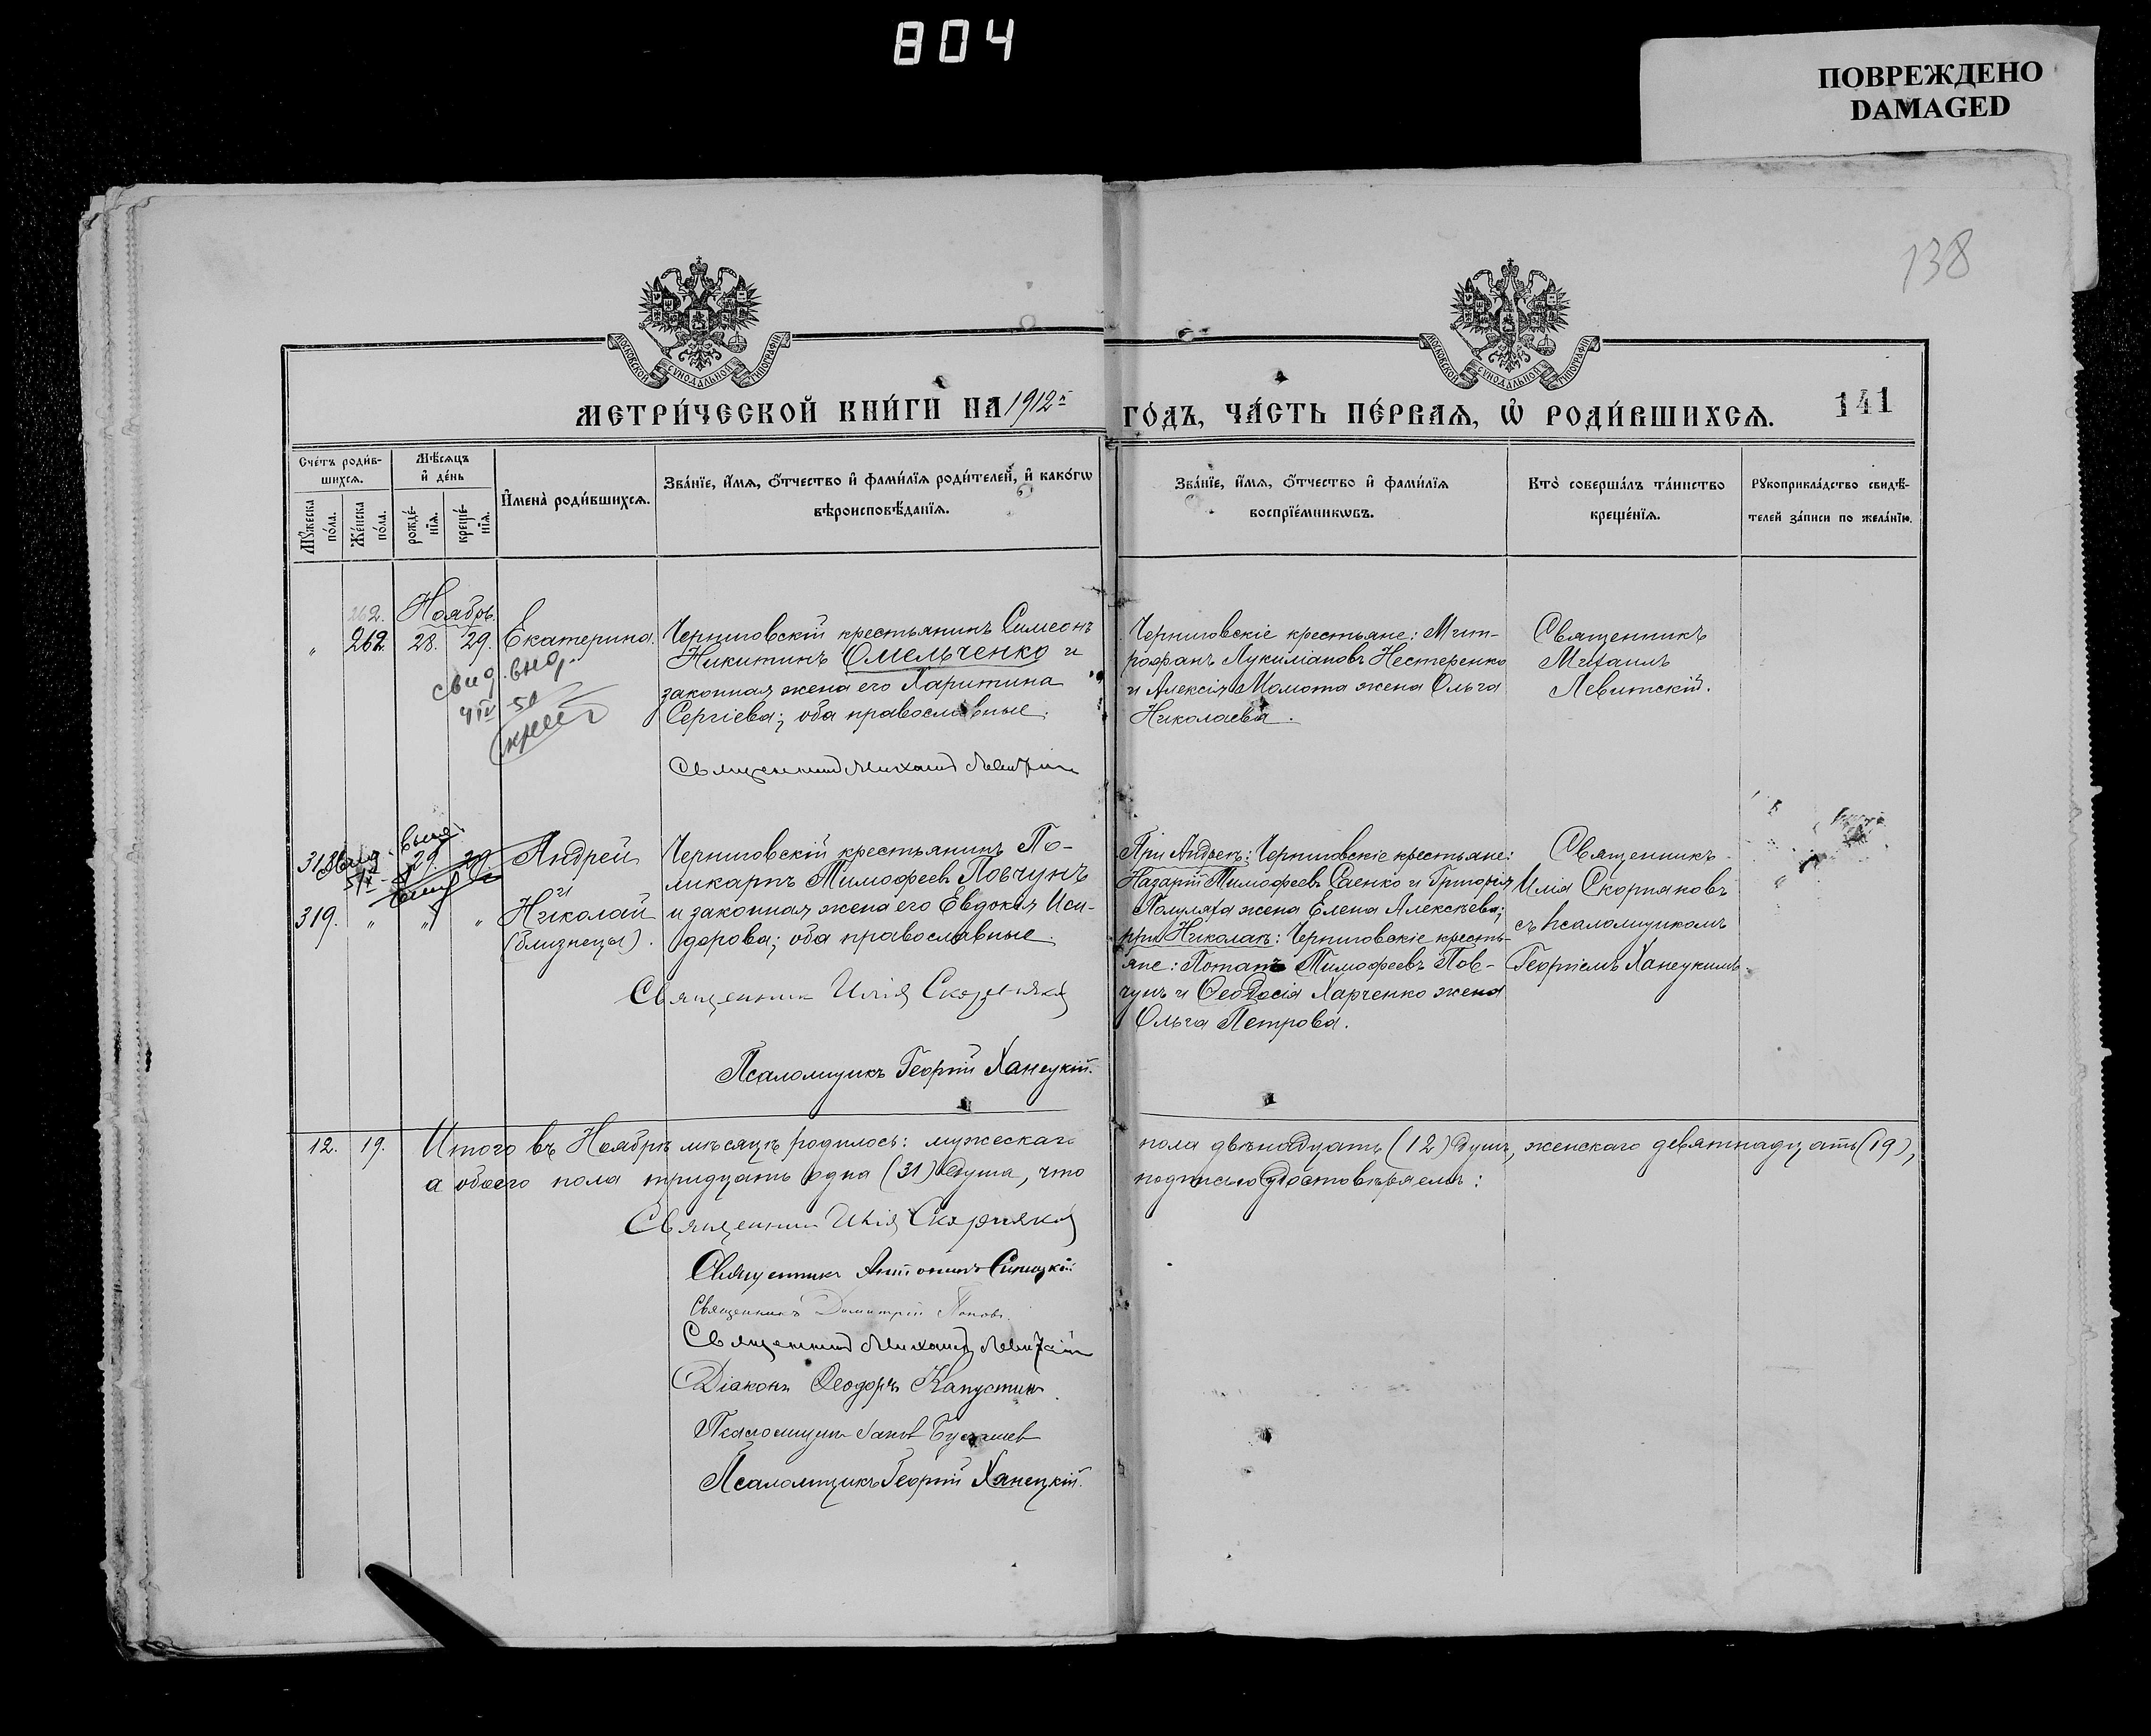 804
ПОВРЕЖДЕНО
DAMAGED
138
МОСКОВСКОЙ СѴНОДАЛЬНОЙ ТИПОГРАФІИ
МОСКОВСКОЙ СѴНОДАЛЬНОЙ ТИПОГРАФІИ
МЕТРИ́ЧЕСКОЙ КНИ́ГИ НА 1912й ГО́ДЪ, ЧА́СТЬ ПЕ́РВАЯ, Ѡ҆ РОДИ́ВШИХСЯ. 141
Сче́тъ роди́в-
шихся.
Мꙋ́жеска
по́ла.
Же́нска
по́ла.
Мѣ́сяцъ
и҆ де́нь
рожде́-
нїя.
креще́-
нїя.
И҆мена̀ роди́вшихся.
Зва́нїе, и҆́мя, ѻ҆́тчество и҆ фами́лїя роди́телей, и҆ како́гѡ
вѣроисповѣ́данїя.
Зва́нїе, и҆́мя, ѻ҆́тчество и҆ фами́лїя
воспрїе́мникѡвъ.
Кто̀ соверша́лъ та́инство
креще́нїя.
Рꙋкоприкла́дство свидѣ́-
телей за́писи по жела́нїю.
262. Ноябрь.
" 262. 28. 29. Екатерина.
свид. выд.
4 IV - 50
Черниговскій крестьянинъ Симеонъ
Никитинъ Омельченко и
законная жена его Харитина
Сергіева; оба православные.
Священникъ Михаилъ Левитскій
Черниговскіе крестьяне: Мит-
рофанъ Лукиліановъ Нестеренко
и Алексія Момота жена Ольга
Николаева.
Священникъ
Михаилъ
Левитскій.
318. 29 29 Андрей
выд.
и
319. " " " Николай
(близнецы).
Черниговскій крестьянинъ По-
ликарпъ Тимофеевъ Повчунъ
и законная жена его Евдокія Иси-
дорова; оба православные.
Священникъ Илія Скорняковъ
Псаломщикъ Георгій Ханецкій.
При Андреѣ: Черниговскіе крестьяне:
Назарій Тимофеевъ Саенко и Григорія
Полуляха жена Елена Алексѣева;
при Николаѣ: Черниговскіе кресть-
яне: Потапъ Тимофеевъ Пов-
чунъ и Ѳеодосія Харченко жена
Ольга Петрова.
Священникъ
Илія Скорняковъ
съ псаломщикомъ
Георгіемъ Ханецкимъ.
12. 19. Итого въ Ноябрѣ мѣсяцѣ родилось: мужескаго пола двѣнадцать (12) душъ, женскаго девятнадцать (19),
а обоего пола тридцать одна (31) душа, что подписью удостовѣряемъ:
Священникъ Илія Скорняковъ
Священникъ Антонинъ Синицкій
Священникъ Димитрій Поповъ.
Священникъ Михаилъ Левитскій
Діаконъ Ѳеодоръ Капустинъ.
Псаломщикъ
Псаломщикъ Георгій Ханецкій.